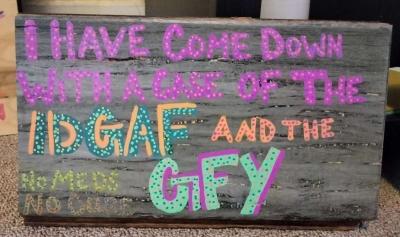 I HAVE COME DOWN
WITH A CASE OF THE
IDGAF AND THE
GFY
NO MEDS
NO CURE